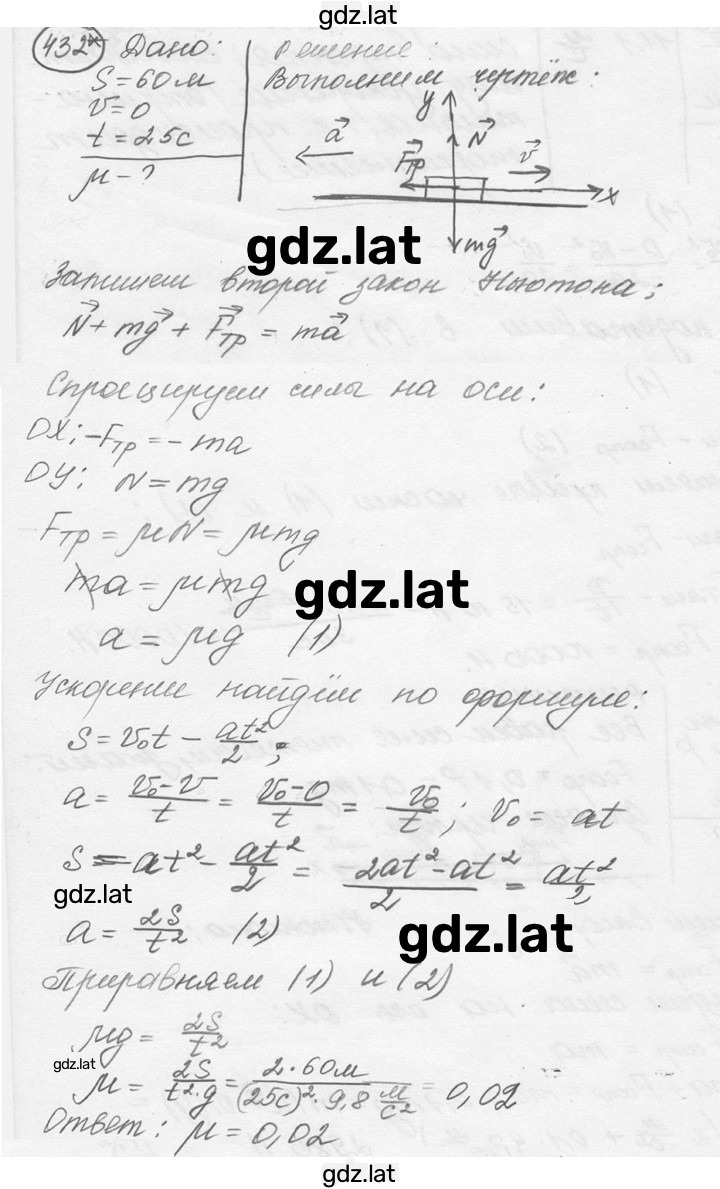 gdz.lat
432* Дано: Решение:
S = 60 м Выполним чертёж:
v = 0
t = 25с
μ - ?
y
N
a
Fтр
v
x
mg
gdz.lat
Запишем второй закон Ньютона:
N + mg + Fтр = ma
Спроецируем силы на оси:
OX: -Fтр = - ma
OY: N = mg
Fтр = μN = μmg
ma = μmg
gdz.lat
a = μg (1)
Ускорение найдём по формуле:
S = v₀t - at²/2;
a = (v₀ - v)/t = (v₀ - 0)/t = v₀/t; v₀ = at
S = at² - at²/2 = (2at² - at²)/2 = at²/2
gdz.lat
a = 2S/t² (2)
gdz.lat
Приравняем (1) и (2)
μg = 2S/t²
gdz.lat
μ = 2S/(t²·g) = 2·60м/((25с)²·9,8 м/с²) = 0,02
Ответ: μ = 0,02
gdz.lat